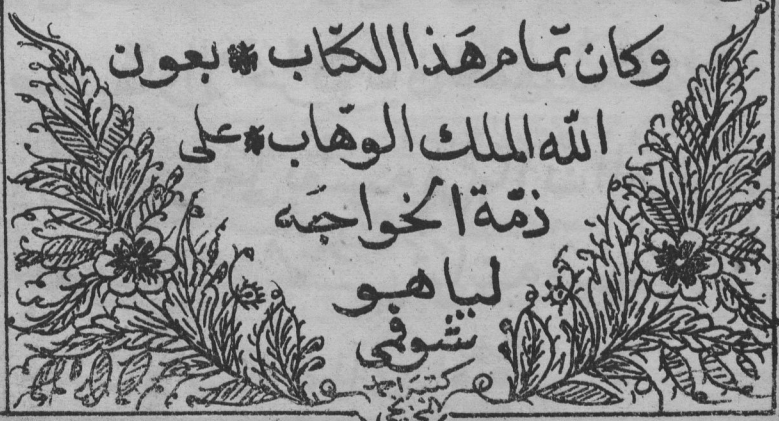 وكان تمام هذا الكتاب * بعون
الله الملك الوهاب * على
ذمّة الخواجه
لياهو
شوفى
كتبه احمد